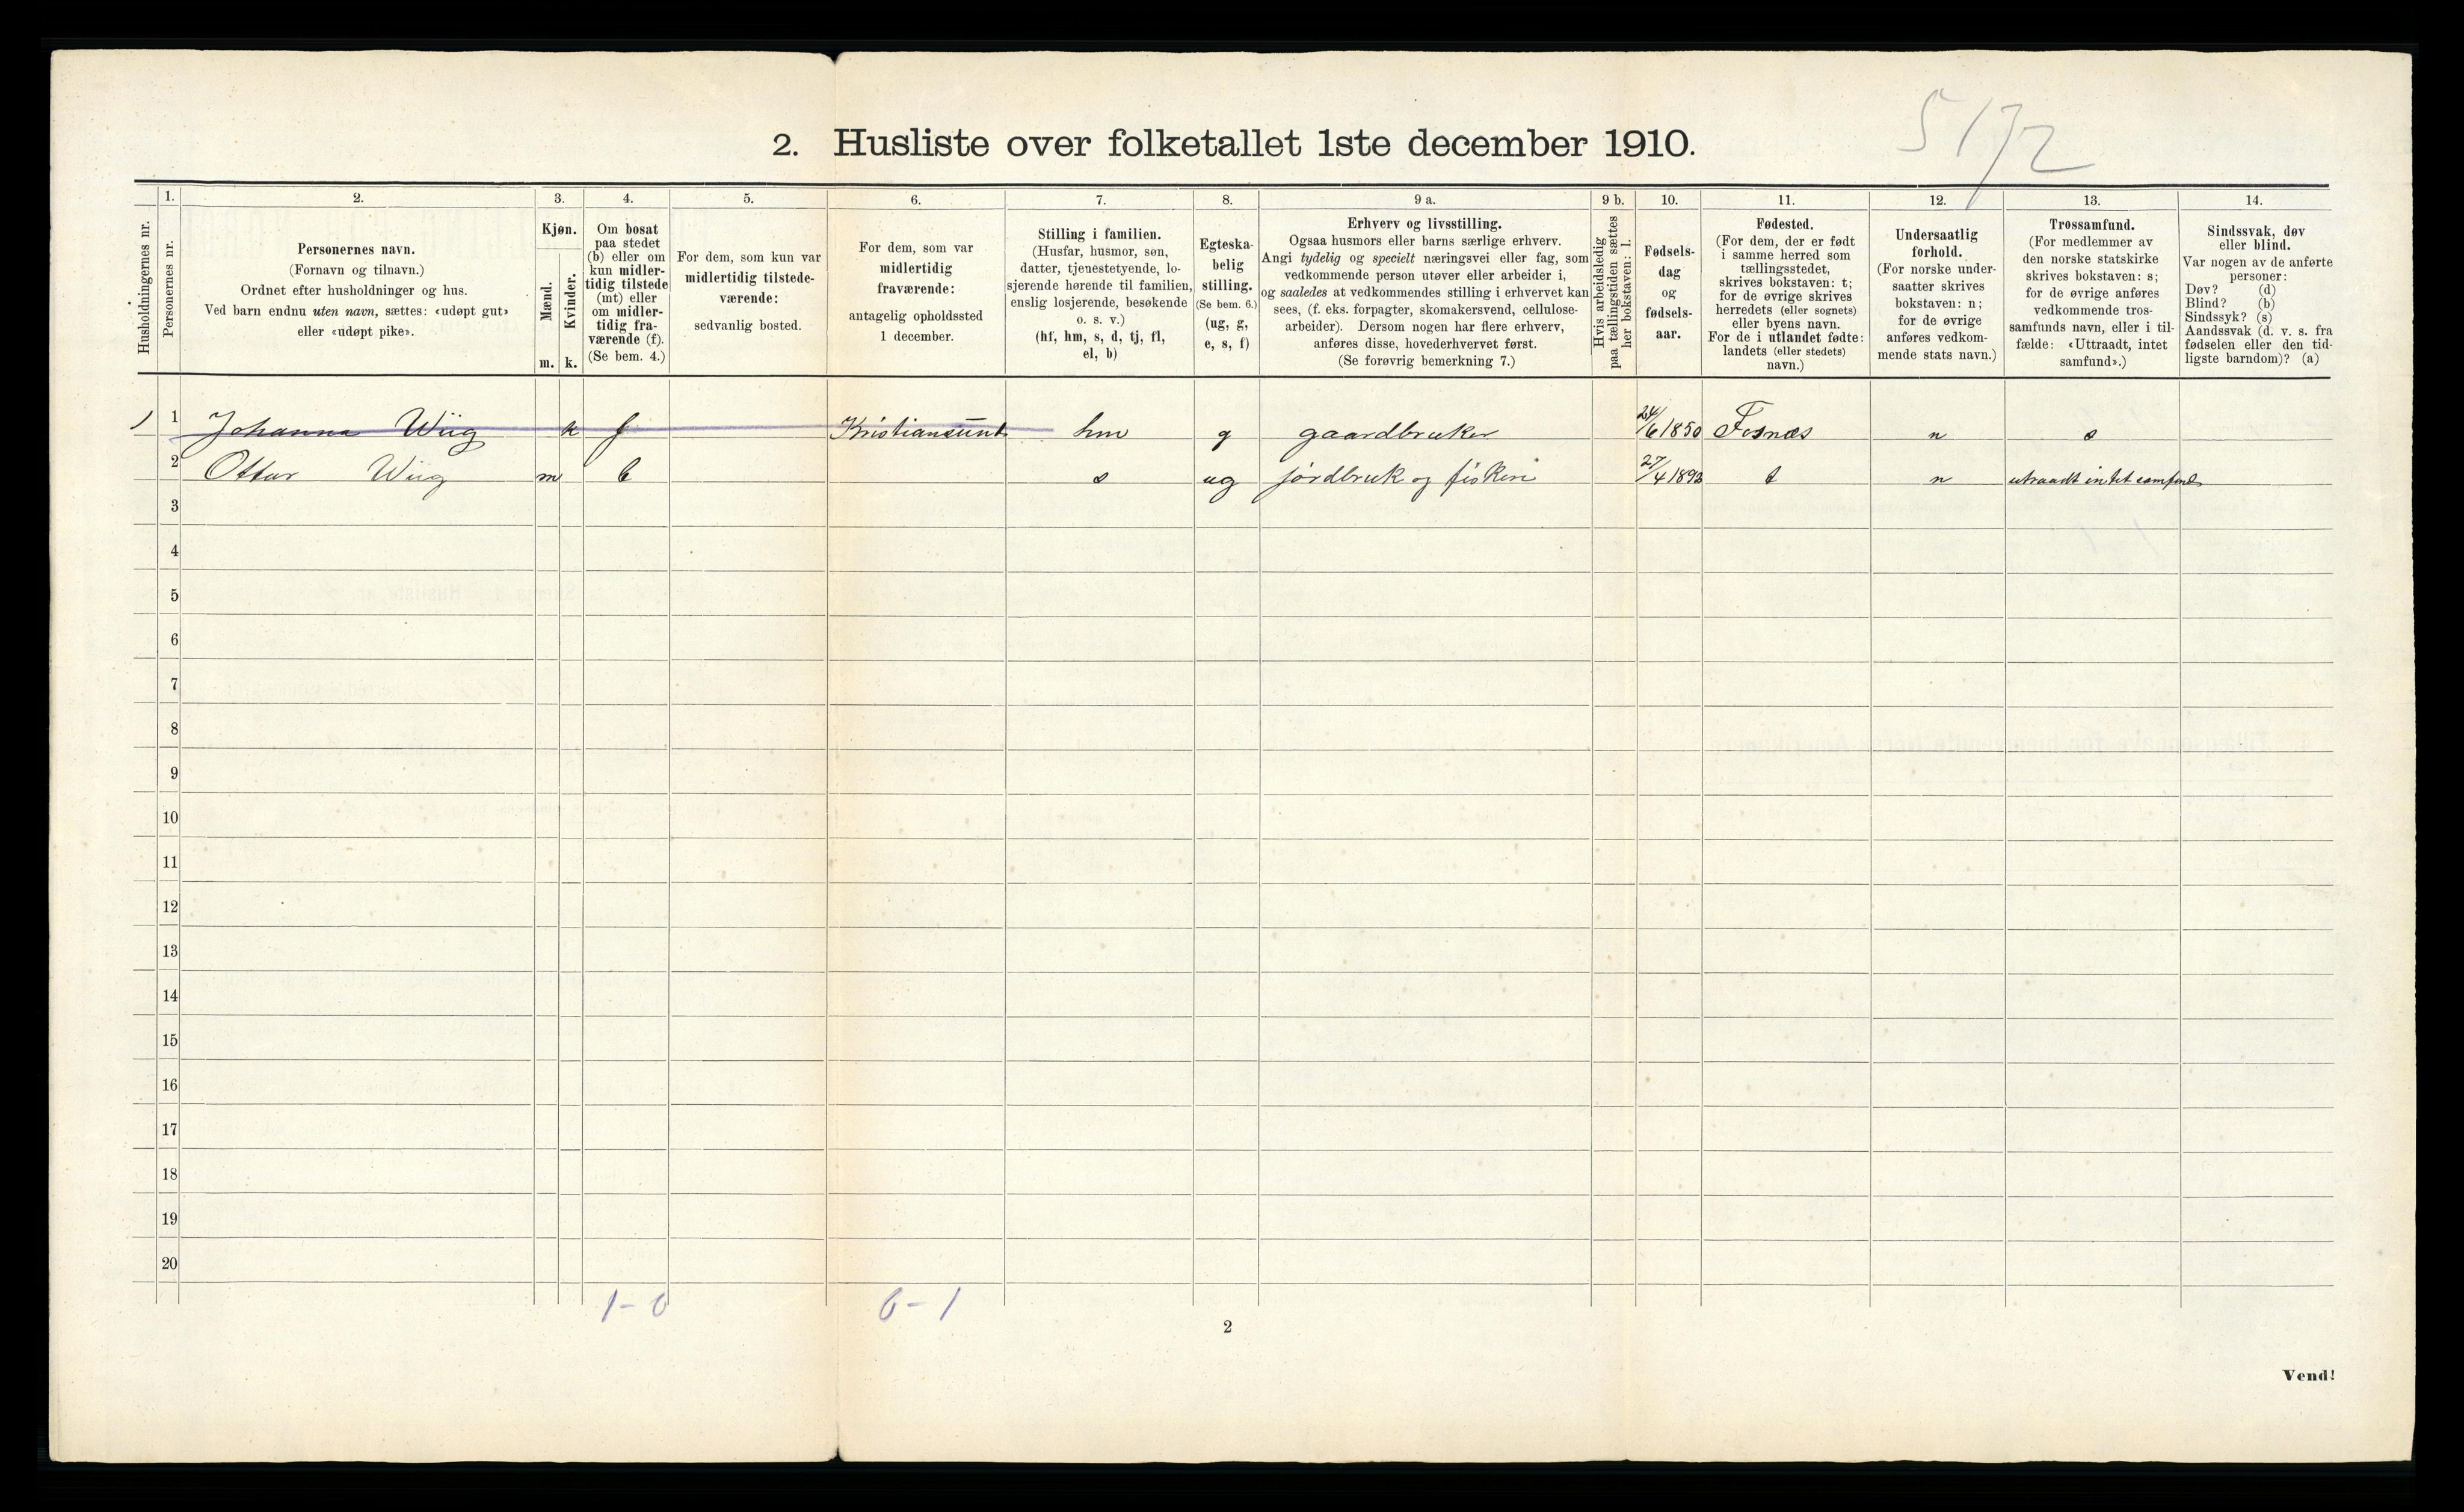 5172
2. Husliste over folketallet 1ste december 1910.
Husholdningernes nr.
1.
Personernes nr.
2.
Personernes navn.
(Fornavn og tilnavn.)
Ordnet efter husholdninger og hus.
Ved barn endnu uten navn, sættes: «udøpt gut»
eller «udøpt pike».
3.
Kjøn.
Mænd.
Kvinder.
m. k.
4.
Om bosat
paa stedet
(b) eller om
kun midler-
tidig tilstede
(mt) eller
om midler-
tidig fra-
værende (f).
(Se bem. 4.)
5.
For dem, som kun var
midlertidig tilstede-
værende:
sedvanlig bosted.
6.
For dem, som var
midlertidig
fraværende:
antagelig opholdssted
1 december.
7.
Stilling i familien.
(Husfar, husmor, søn,
datter, tjenestetyende, lo-
sjerende hørende til familien,
enslig losjerende, besøkende
o. s. v.)
(hf, hm, s, d, tj, fl,
el, b)
8.
Egteska-
belig
stilling.
(Se bem. 6.)
(ug, g,
e, s, f)
9 a.
Erhverv og livsstilling.
Ogsaa husmors eller barns særlige erhverv.
Angi tydelig og specielt næringsvei eller fag, som
vedkommende person utøver eller arbeider i,
og saaledes at vedkommendes stilling i erhvervet kan
sees, (f. eks. forpagter, skomakersvend, cellulose-
arbeider). Dersom nogen har flere erhverv,
anføres disse, hovederhvervet først.
(Se forøvrig bemerkning 7.)
9 b.
Hvis arbeidsledig
paa tællingstiden sættes
her bokstaven: l.
10.
Fødsels-
dag
og
fødsels-
aar.
11.
Fødested.
(For dem, der er født
i samme herred som
tællingsstedet,
skrives bokstaven: t;
for de øvrige skrives
herredets (eller sognets)
eller byens navn.
For de i utlandet fødte:
landets (eller stedets)
navn.)
12.
Undersaatlig
forhold.
(For norske under-
saatter skrives
bokstaven: n;
for de øvrige
anføres vedkom-
mende stats navn.)
13.
Trossamfund.
(For medlemmer av
den norske statskirke
skrives bokstaven: s;
for de øvrige anføres
vedkommende tros-
samfunds navn, eller i til-
fælde: «Uttraadt, intet
samfund».)
14.
Sindssvak, døv
eller blind.
Var nogen av de anførte
personer:
Døv? (d)
Blind? (b)
Sindssyk? (s)
Aandssvak (d. v. s. fra
fødselen eller den tid-
ligste barndom)? (a)
1 Johanna Wiig k f Kristiansunt hm g gaardbruker 24/6 1850 Fosnæs n s
2 Ottar Wiig m b s ug jordbruk og fiskeri 27/4 1893 t n utraadt intet samfund
3
4
5
6
7
8
9
10
11
12
13
14
15
16
17
18
19
20
1-0 0-1
2
Vend!